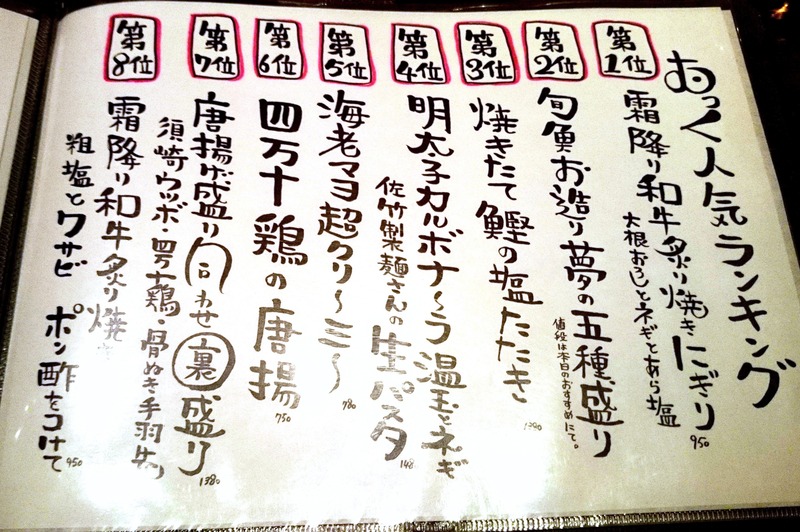 おっく人気ランキング
第1位
霜降り和牛炙り焼きにぎり
大根おろしとネギとあら塩
950
第2位
旬魚お造り夢の五種盛り
値段は本日のおすすめにて。
第3位
焼きたて鰹の塩たたき
第4位
明太子カルボナ〜ラ温玉とネギ
佐竹製麺さんの生パスタ
第5位
海老マヨ超クリ〜ミ〜
780
第6位
四万十鶏の唐揚
750
第7位
唐揚げ盛り合わせ裏盛り
須崎ウツボ・四万十鶏・骨ぬき手羽先
1380
第8位
霜降り和牛炙り焼き
粗塩とワサビ ポン酢をつけて
950